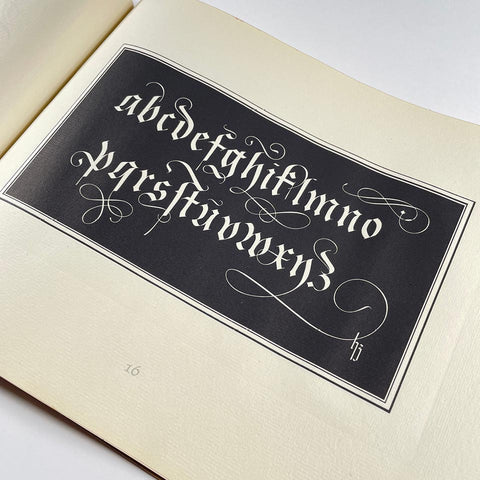 abcdefghiklmno
pqrsſtŭvwxyz
hj
16